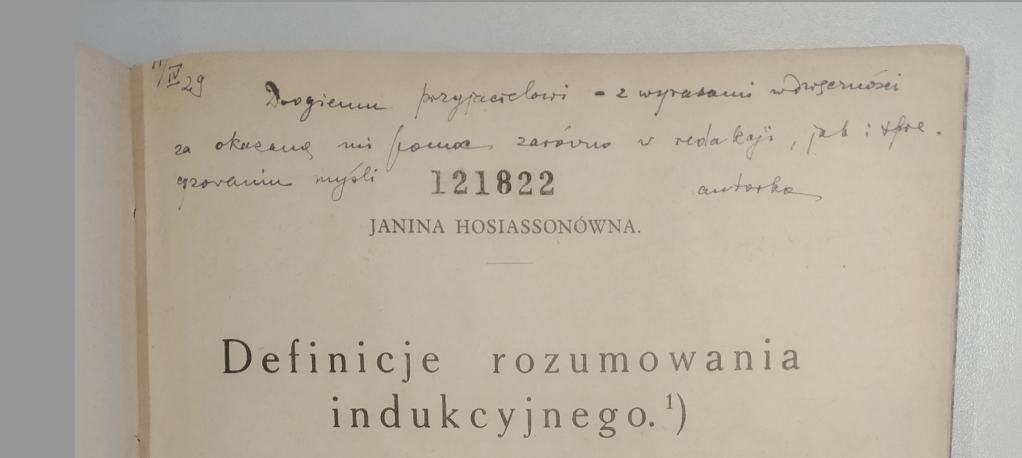 11/IV 29
Drogiemu przyjacielowi - z wyrazami wdzięczności
za okazaną mi pomoc zarówno w redakcji, jak i spre-
cyzowaniu myśli
autorka
121822
JANINA HOSIASSONÓWNA.
Definicje rozumowania
indukcyjnego.¹)